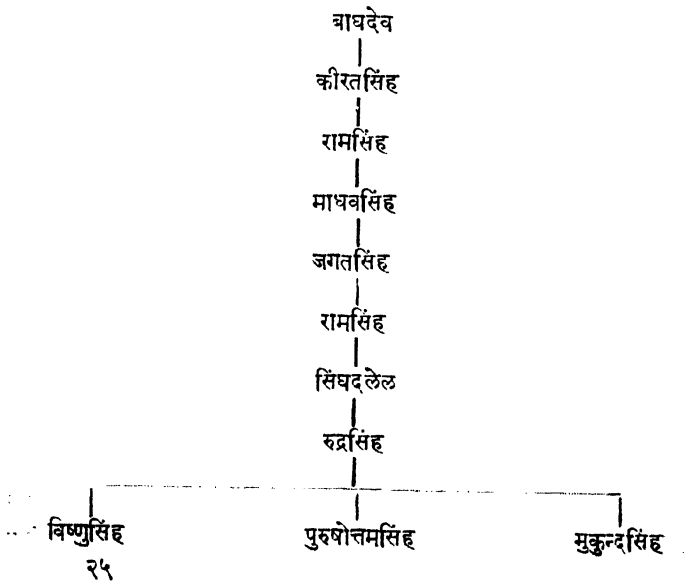 बाघदेव
कीरतसिंह
रामसिंह
माधवसिंह
जगतसिंह
रामसिंह
सिंघदलेल
रुद्रसिंह
विष्णुसिंह पुरुषोत्तमसिंह मुकुन्दसिंह
२५